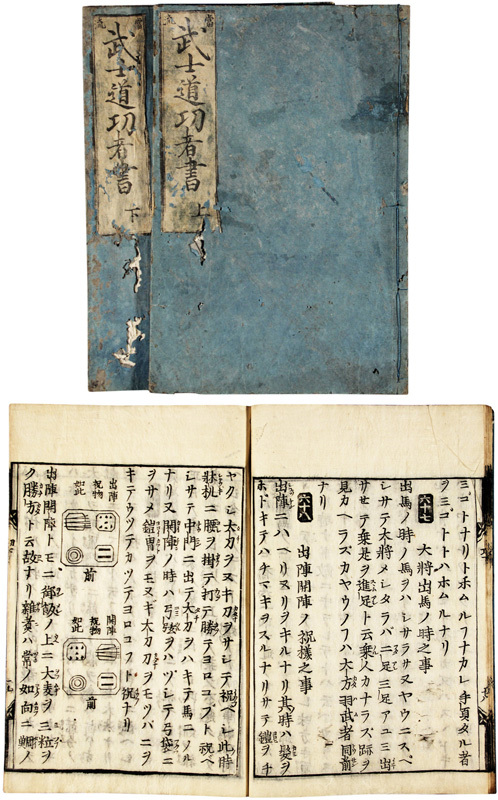 武士道功者書
上
武士道功者書
下
ミゴトナリトホムルフナカレ手頃タル者
ヲミゴトトハホムルナリ
六十七 大將出馬ノ時之事
出馬ノ時ノ馬ヲハシサラサヌヤウニスベ
シサテ大將メシタラバ二足三足アユミ出
サセテ乗是ヲ進足ト云乗人カナラズ跡ヲ
見カヘラズカヤウノフハ大方羽武者同前
ナリ
六十八 出陣開陣ノ祝樣之事
出陣ニハヘリヌリヲキルナリ其時ハ髪ヲ
ホドキテハチマキヲスルナリサテ鎧ヲチ
ヤクシ太刀ヲヌキ刀ヲサシテ祝ベシ此時
牀机ニ腰ヲ掛テ打テ勝テヨロコブト祝ヘ
シサテ中門ニ出テ太刀ヲハキテ馬ニノル
ナリ又開陣ノ時ハ弓弦ヲハヅシテ弓袋ニ
ヲサメ鎧冑ヲモヌキ太刀刀ヲモツバニヲ
キテウツテカツテヨロコフト祝ナリ
出陣
祝物
如此
前
開陣
祝物
如此
前
出陣開陣トモニ ノ上ニ大 ヲ三粒ヲ
ク勝方ト云故ナリ雑煮ハ常ノ如向ニ鯛ノ